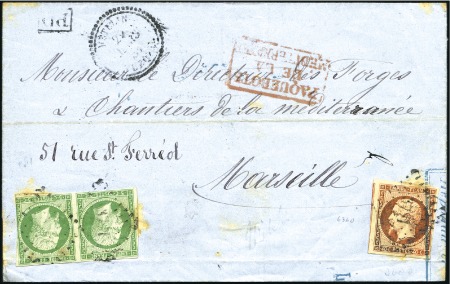 PD
PAQUEBOTS
DE LA
MEDITERRANEE
Monsieur le Directeur des Forges
& Chantiers de la méditerranée
51 rue St. Ferréol
Marseille